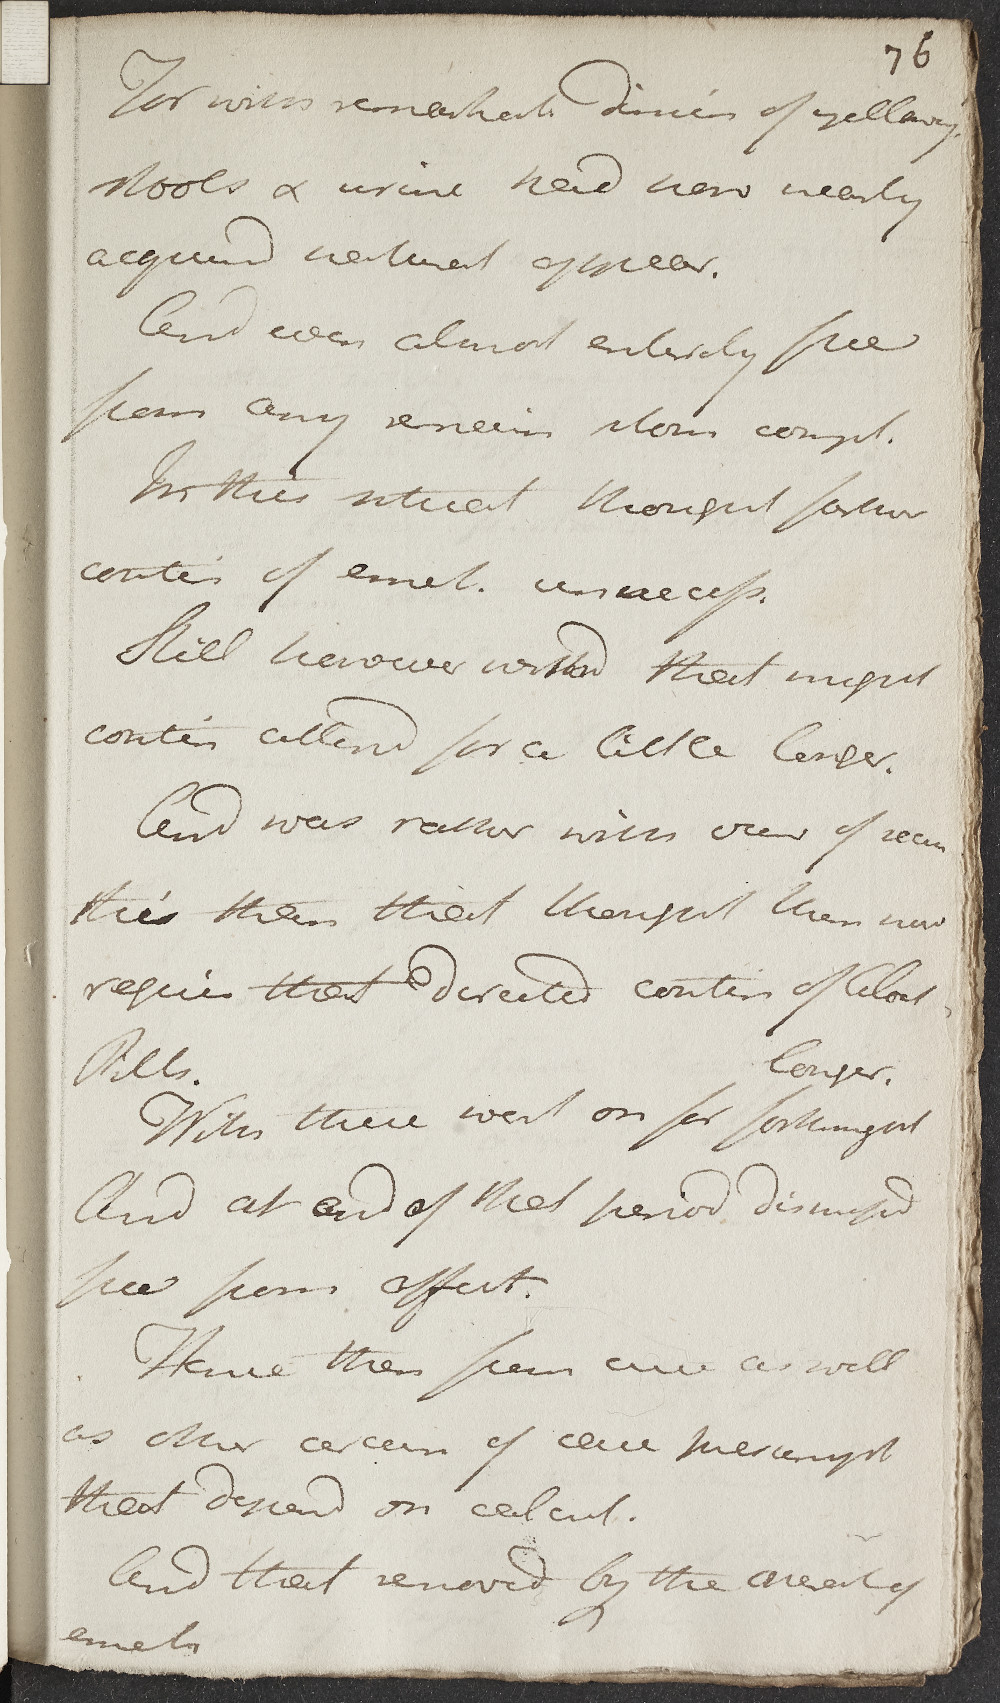 76
For with remarkab. dimin of yellowy.
stools & urine had now nearly
acquird natural appear.
And was almost entirely free
from any remain stom compl.
In this situat thought farther
contin of emet. unnecess.
Still however wishd that might
contin attend for a little longer.
And was rather with view of secur
this than that thought then now
requir that directed contin of Aloet
Pills. longer.
With these went on for fortnight
And at end of that period dismissd
free from affect.
Hence then from cure as well
as other circum of case presumpt
that depend on calcul.
And that removed by the operat of
emet